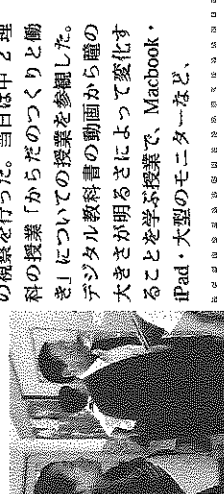 の視察を行った。当日は中 2 理
科の授業「からだのつくりと働
き」についての授業を参観した。
デジタル教科書の動画から瞳の
大きさが明るさによって変化す
ることを学ぶ授業で、Macbook・
iPad・大型のモニターなど、